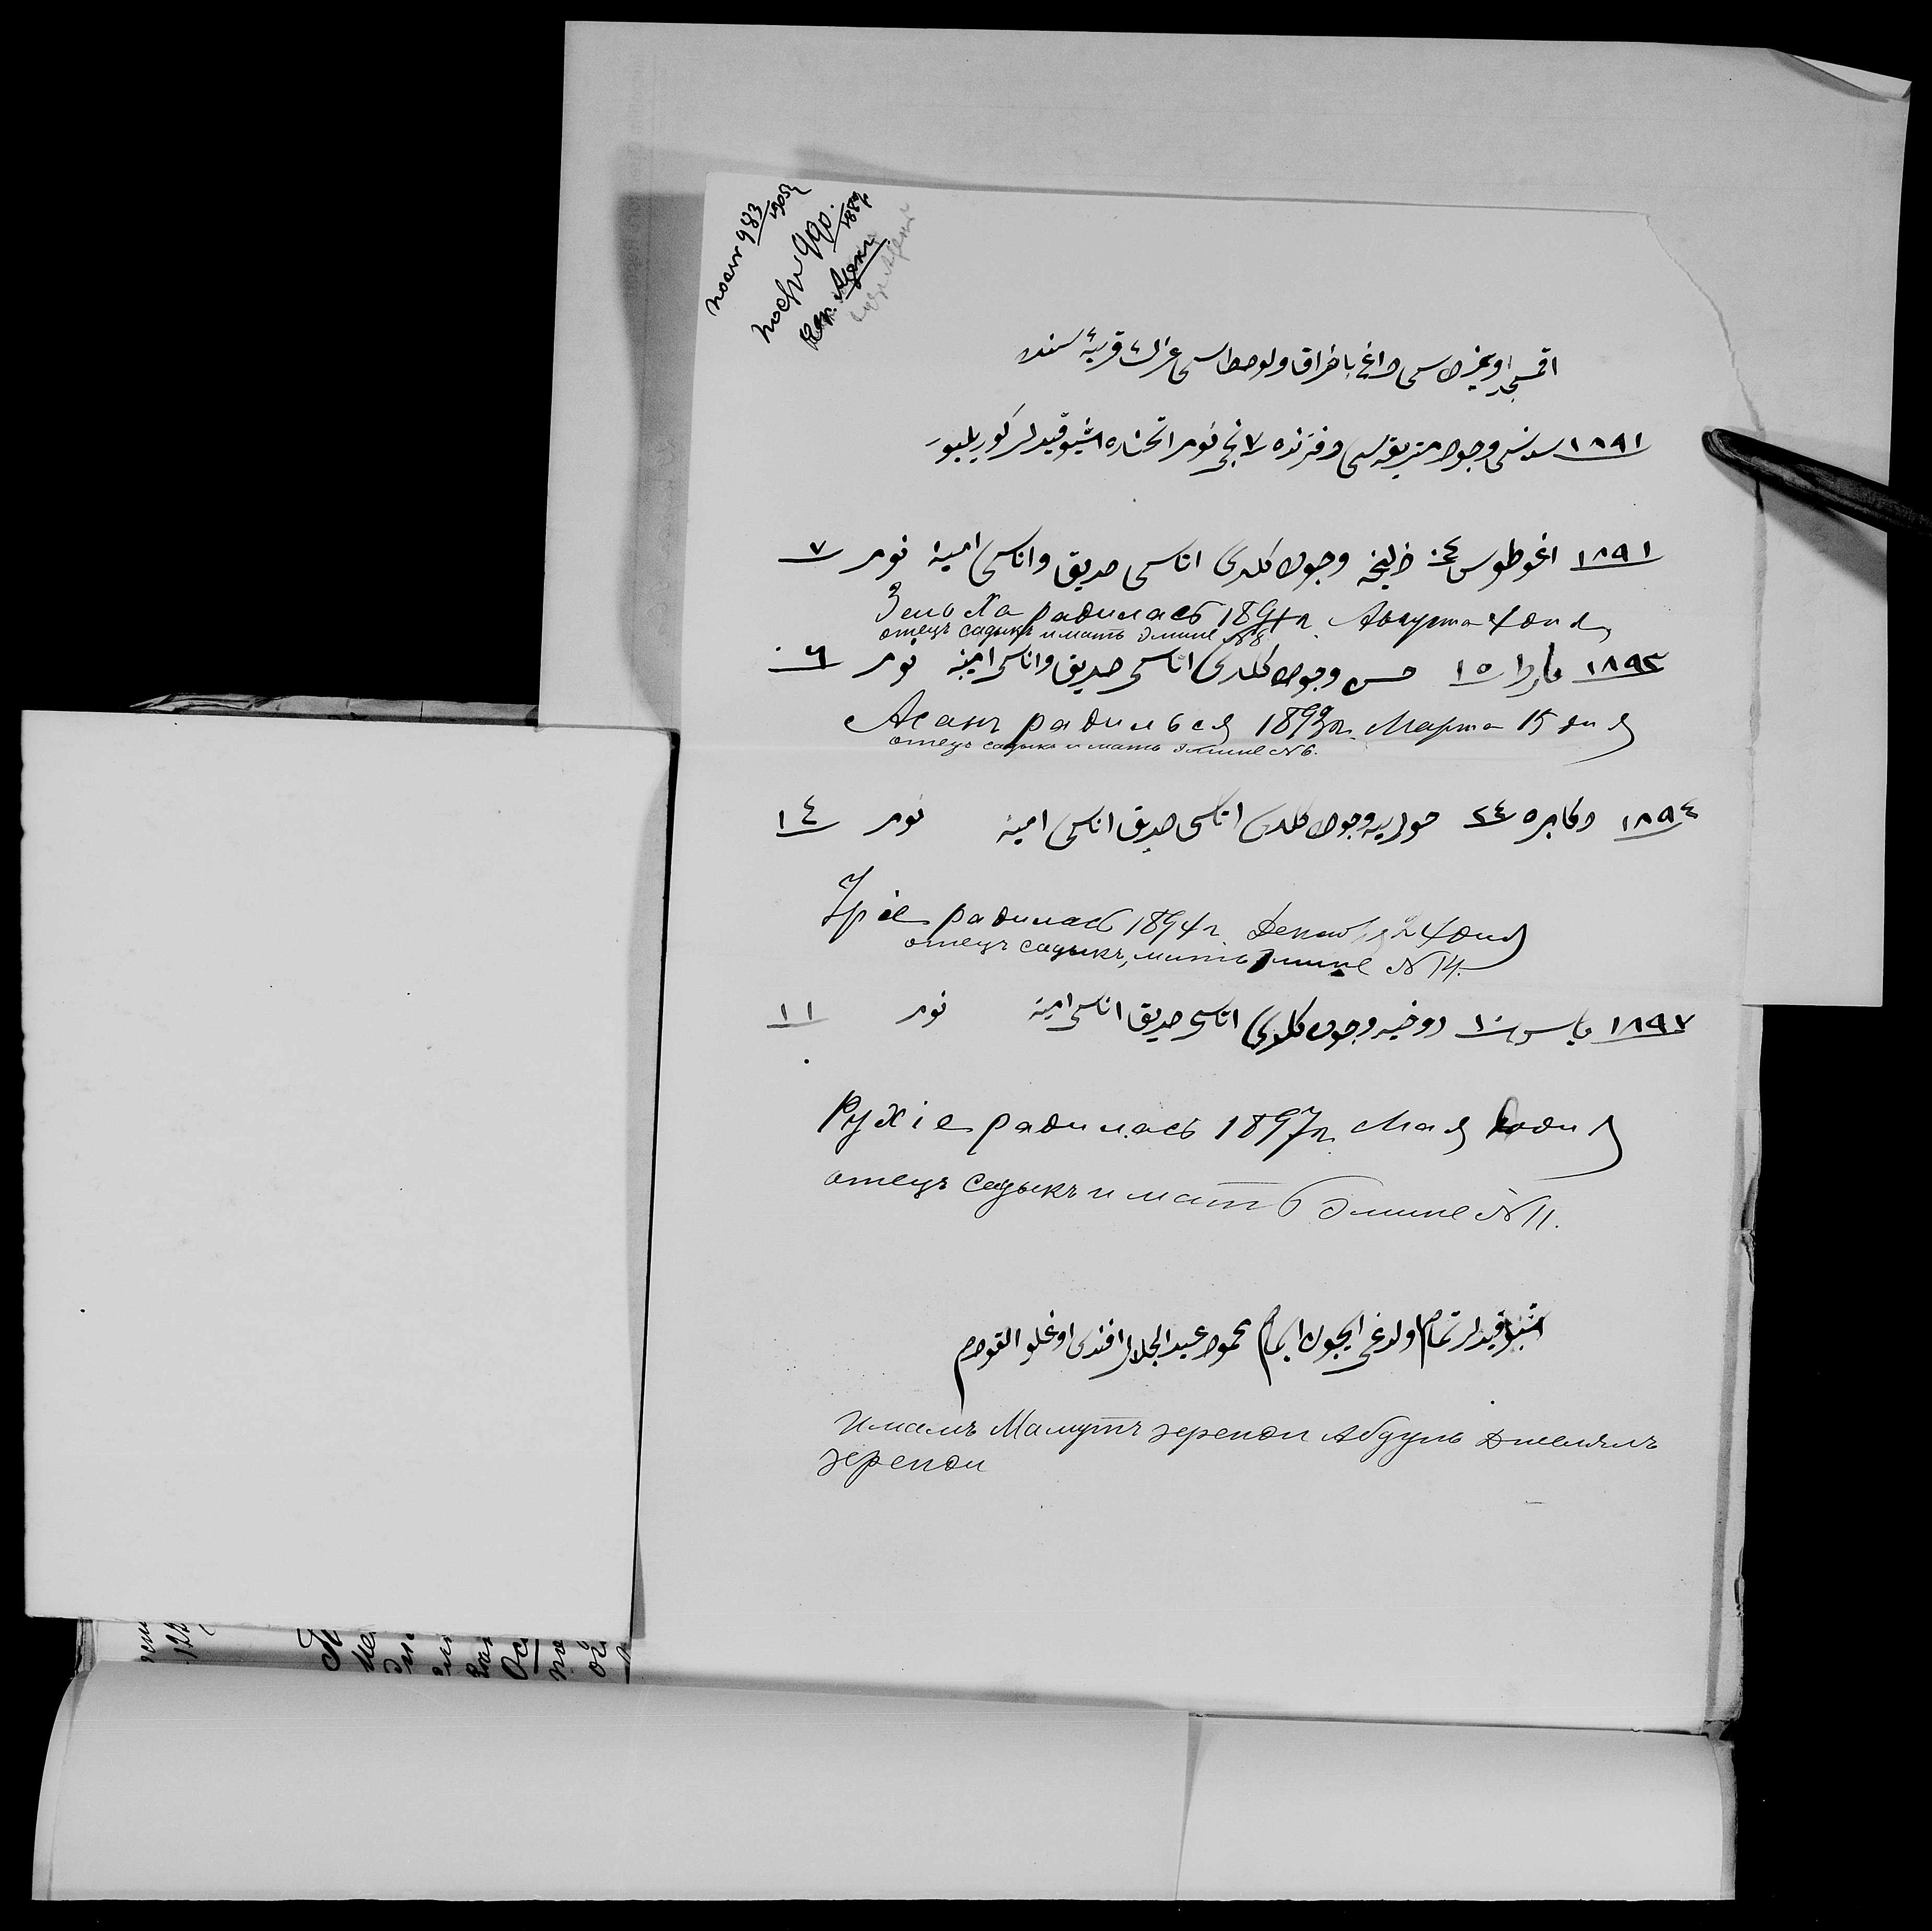 983
1905
990.
1889
اقمسجد اويزداسى داغ باطراق ولوصطاسى عزلت قريه سنده
١٨٩١ سنه سى وجود متريقه سى دفترنده ٧ نجى نومر اتحتنده اشبو قيدلر كوريليور
١٨٩١ اغوطوس ٤ زليخه وجوده كلدى اتاسى صديق واناسى امينه نومر ٧
Зельха радилась 1891 г. Августа 4 дня
отецъ садыкъ и мать Эмине №
١٨٩٣ مارط ١٥ حسن وجوده كلدى اتاسى صديق واناسى امينه نومر ٦
Асанъ радилься 1893 г. Марта 15 дня
отецъ садыкъ и мать Эмине № 6.
١٨٩٤ دكابره ٢٤ حوريه وجوده كلدى اتاسى صديق اناسى امينه نومر ١٤
Уріе радилась 1894 г. Декабря 24 дня
отецъ садыкъ, мать Эмине № 14.
١٨٩٧ مايس ١٠ روخيه وجوده كلدى اتاسى صديق اناسى امينه نومر ١١
Рухіе радилась 1897 г. Мая дня
отецъ садыкъ и мать Эмине № 11.
اشبو قيدلر تمام اولدغى ايچون امام محمود عبد الجلال افندى اوغلو القويدم
Имамъ Мамутъ эфенди Абдуль Джелялъ
эфенди